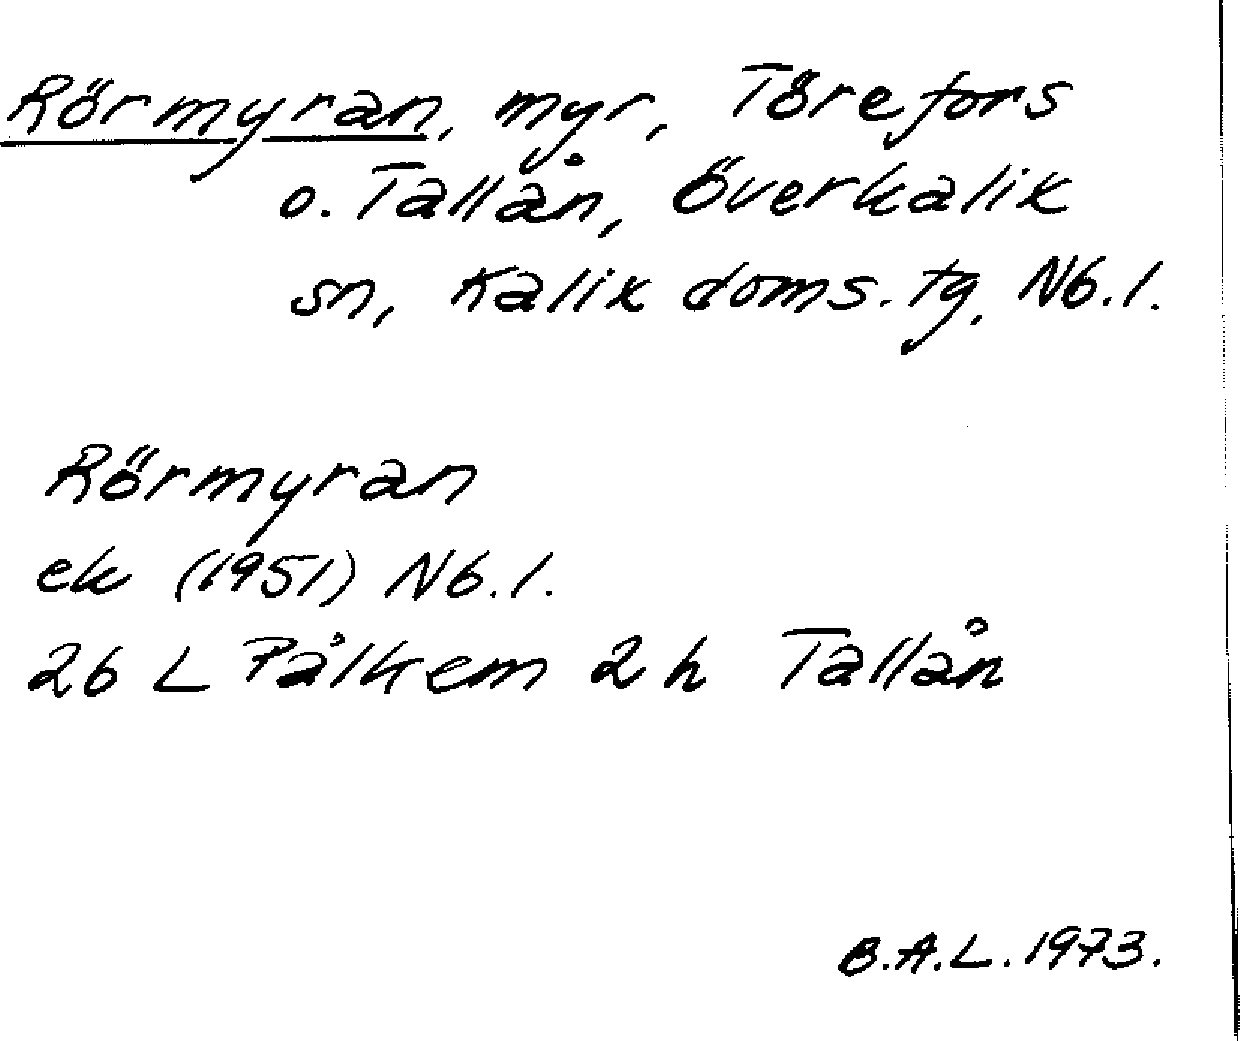 Rörmyran, myr, Törefors
o. Tallån, Överkalix
sn, Kalix doms. tg, Nb. l.
Rörmyran
ek (1951) Nb. l.
26 L Pålkem 2 h Tallån
B.A.L. 1973.